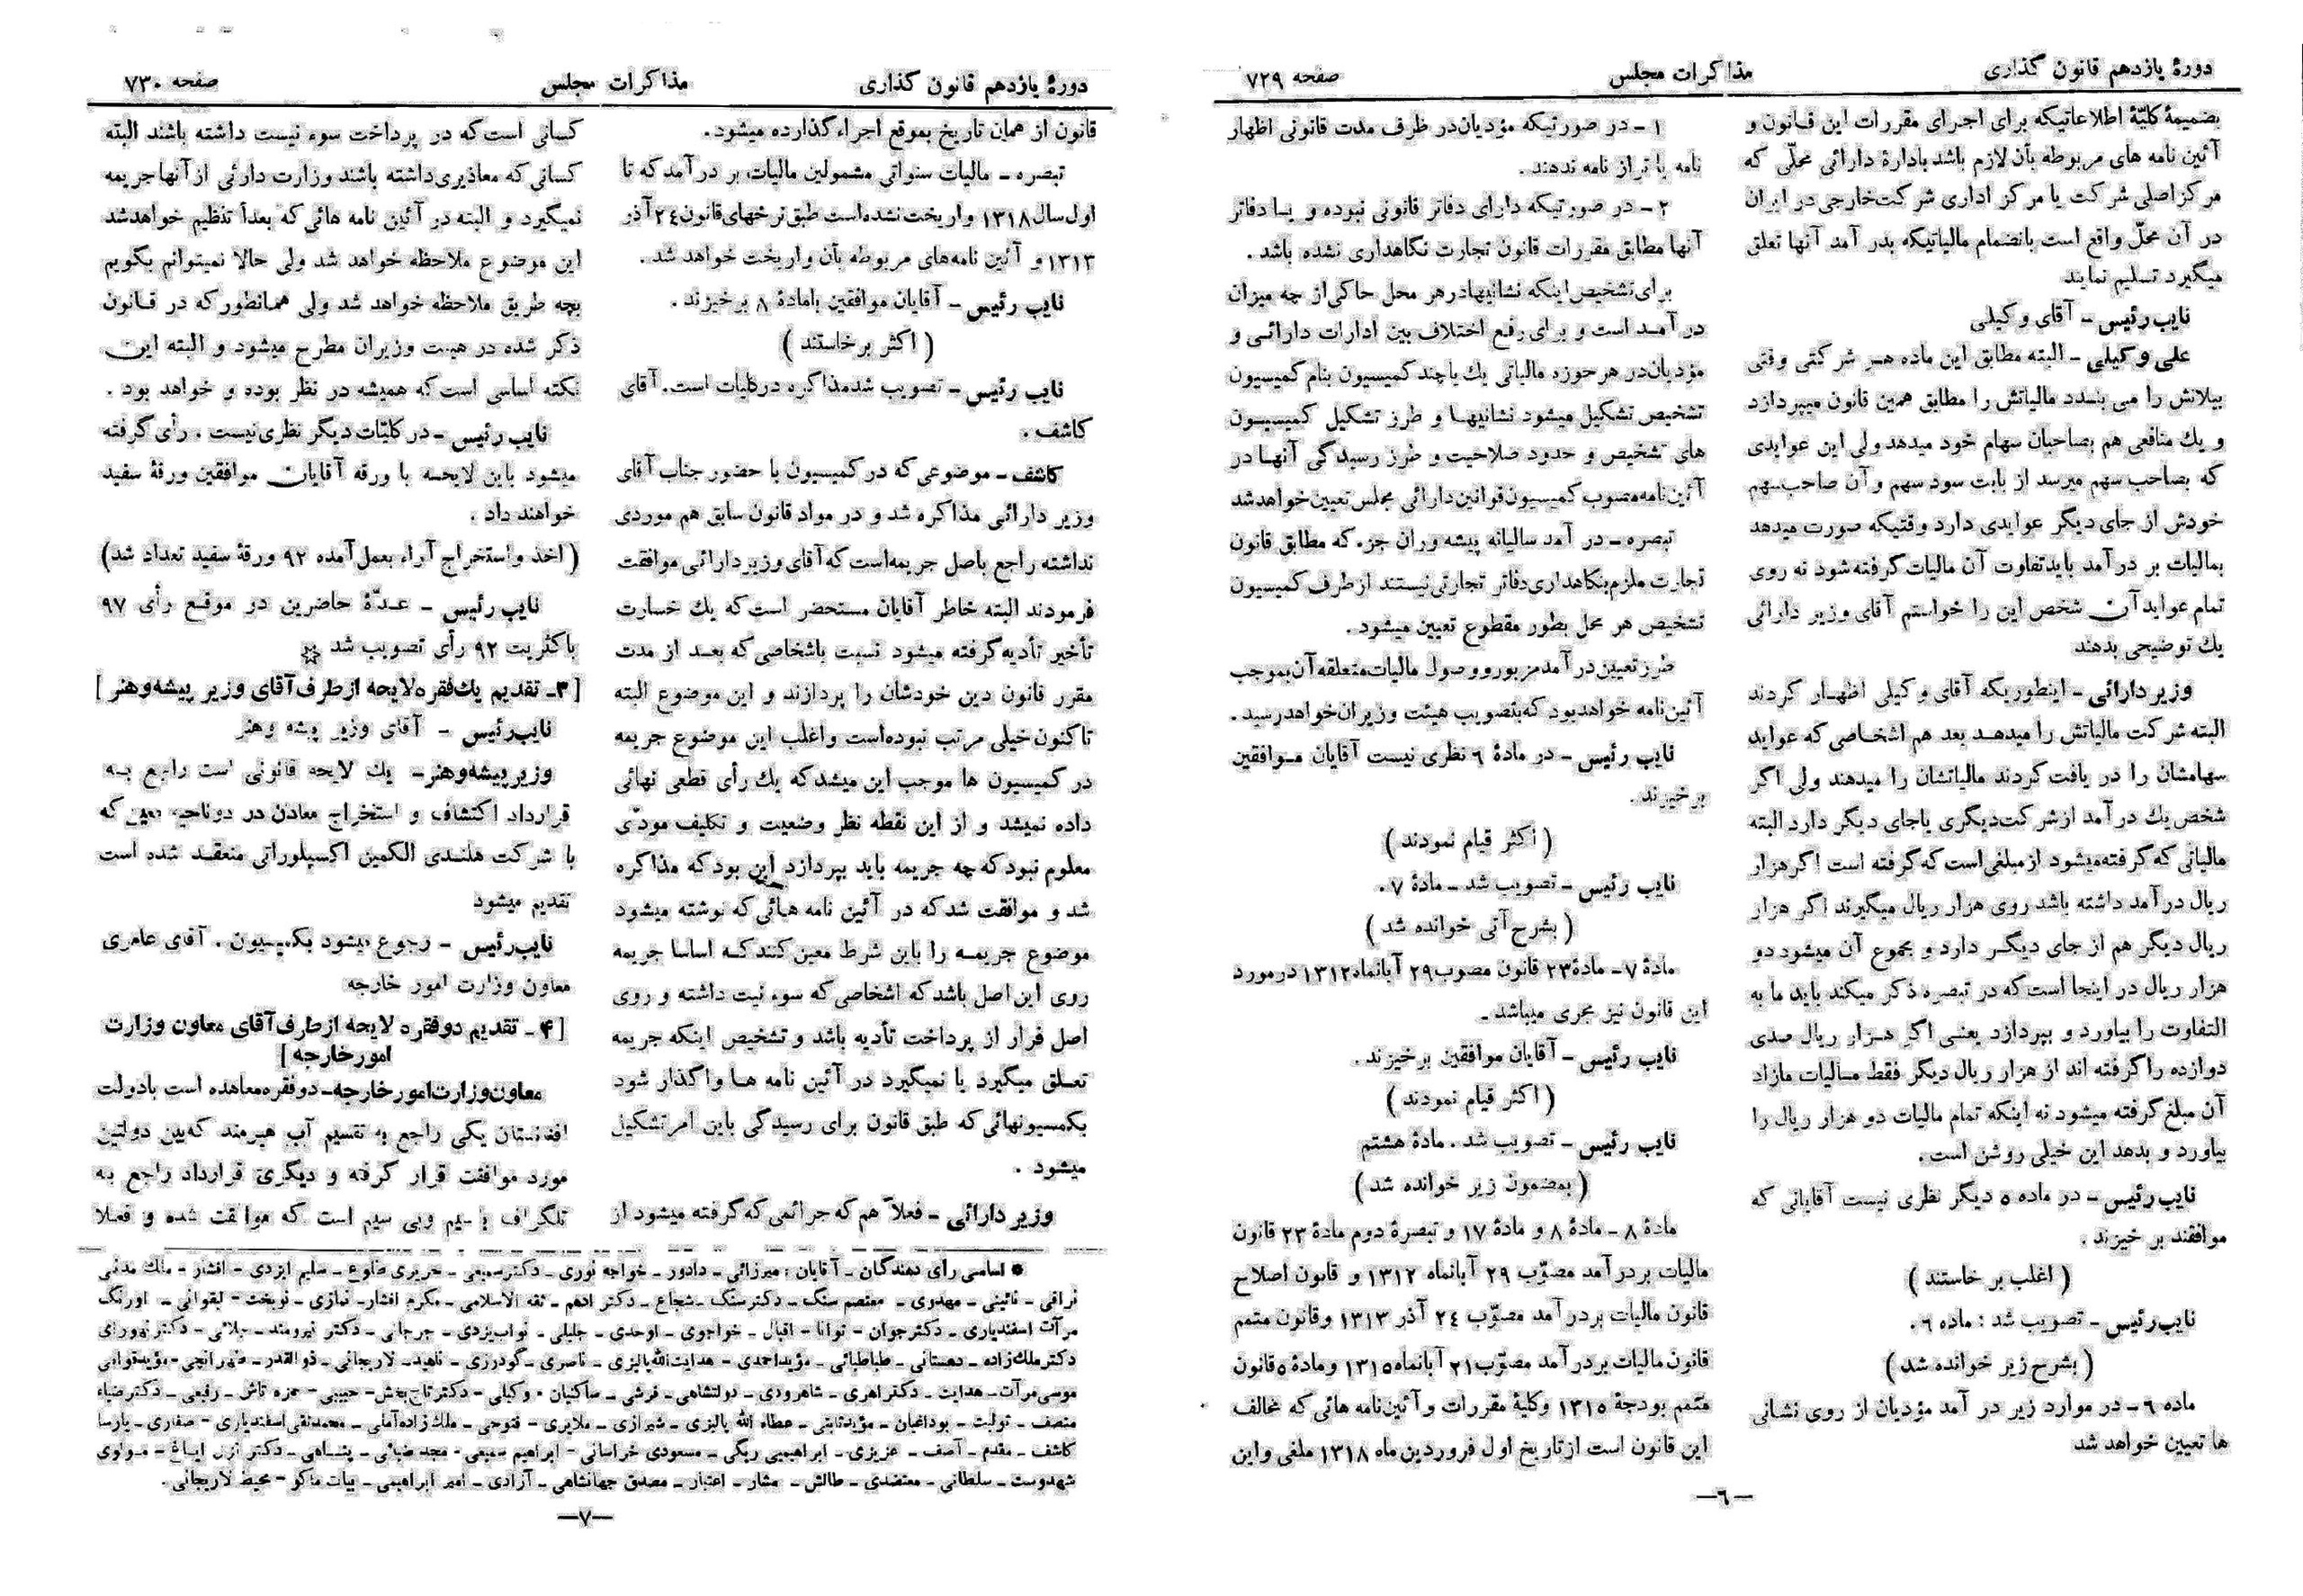 دورهٔ یازدهم قانون گذاری
مذاکرات مجلس
صفحه ۷۲۹
بضمیمهٔ کلیّهٔ اطلاعاتیکه برای اجرای مقررات این قانون و
آئین نامه های مربوطه بآن لازم باشد بادارهٔ دارائی محلّی که
مرکز اصلی شرکت یا مرکز اداری شرکت خارجی در ایران
در آن محلّ واقع است بانضمام مالیاتیکه بدر آمد آنها تعلق
میگیرد تسلیم نمایند
نایب رئیس ـ آقای وکیلی
علی وکیلی ـ البته مطابق این ماده هر شرکتی وقتی
بیلانش را می بندد مالیاتش را مطابق همین قانون میپردازد
و یك منافعی هم بصاحبان سهام خود میدهد ولی این عوایدی
که بصاحب سهم میرسد از بابت سود سهم و آن صاحب سهم
خودش از جای دیگر عوایدی دارد وقتیکه صورت میدهد
بمالیات بر درآمد باید تفاوت آن مالیات گرفته شود نه روی
تمام عواید آن شخص این را خواستم آقای وزیر دارائی
یك توضیحی بدهند
وزیر دارائی ـ اینطوریکه آقای وکیلی اظهار کردند
البته شرکت مالیاتش را میدهد بعد هم اشخاصی که عواید
سهامشان را در یافت کردند مالیاتشان را میدهند ولی اگر
شخص یك درآمد از شرکت دیگری یا جای دیگر دارد البته
مالیاتی که گرفته میشود از مبلغی است که گرفته است اگر هزار
ریال درآمد داشته باشد روی هزار ریال میگیرند اگر هزار
ریال دیگر هم از جای دیگر دارد و مجموع آن میشود دو
هزار ریال در اینجا است که در تبصره ذکر میکند باید ما به
التفاوت را بیاورد و بپردازد یعنی اگر هزار ریال صدی
دوازده را گرفته اند از هزار ریال دیگر فقط مالیات مازاد
آن مبلغ گرفته میشود نه اینکه تمام مالیات دو هزار ریال را
بیاورد و بدهد این خیلی روشن است .
نایب رئیس ـ در ماده ۵ دیگر نظری نیست آقایانی که
موافقند بر خیزند .
( اغلب بر خاستند )
نایب رئیس ـ تصویب شد : ماده ۶ .
( بشرح زیر خوانده شد )
ماده ۶ ـ در موارد زیر در آمد مؤدیان از روی نشانی
ها تعیین خواهد شد
۱ ـ در صورتیکه مؤدیان در ظرف مدت قانونی اظهار
نامه یا تراز نامه ندهند .
۲ ـ در صورتیکه دارای دفاتر قانونی نبوده و یا دفاتر
آنها مطابق مقررات قانون تجارت نگاهداری نشده باشد .
برای تشخیص اینکه نشانیها در هر محل حاکی از چه میزان
در آمد است و برای رفع اختلاف بین ادارات دارائی و
مؤدیان در هر حوزه مالیاتی یك یا چند کمیسیون بنام کمیسیون
تشخیص تشکیل میشود نشانیها و طرز تشکیل کمیسیون
های تشخیص و حدود صلاحیت و طرز رسیدگی آنها در
آئین نامه مصوب کمیسیون قوانین دارائی مجلس تعیین خواهد شد
تبصره ـ در آمد سالیانه پیشه وران جزء که مطابق قانون
تجارت ملزم بنگاهداری دفاتر تجارتی نیستند از طرف کمیسیون
تشخیص هر محل بطور مقطوع تعیین میشود .
طرز تعیین در آمد مزبور و وصول مالیات متعلقه آن بموجب
آئین نامه خواهد بود که بتصویب هیئت وزیران خواهد رسید .
نایب رئیس ـ در مادهٔ ۶ نظری نیست آقایان موافقین
برخیزند .
( اکثر قیام نمودند )
نایب رئیس ـ تصویب شد ـ مادهٔ ۷ .
( بشرح آتی خوانده شد )
مادهٔ ۷ ـ مادهٔ ۲۳ قانون مصوب ۲۹ آبانماه ۱۳۱۲ در مورد
این قانون نیز مجری میباشد ـ
نایب رئیس ـ آقایان موافقین برخیزند .
( اکثر قیام نمودند )
نایب رئیس ـ تصویب شد . مادهٔ هشتم
( بمضمون زیر خوانده شد )
مادهٔ ۸ ـ مادهٔ ۸ و مادهٔ ۱۷ و تبصرهٔ دوم مادهٔ ۲۳ قانون
مالیات بر درآمد مصوّب ۲۹ آبانماه ۱۳۱۲ و قانون اصلاح
قانون مالیات بر درآمد مصوّب ۲۴ آذر ۱۳۱۳ و قانون متمم
قانون مالیات بر درآمد مصوّب ۲۱ آبانماه ۱۳۱۵ و مادهٔ ۵ قانون
متمم بودجهٔ ۱۳۱۵ و کلیهٔ مقررات و آئین نامه هائی که مخالف
این قانون است از تاریخ اول فروردین ماه ۱۳۱۸ ملغی و این
—۶—
دورهٔ یازدهم قانون گذاری
مذاکرات مجلس
صفحه ۷۳۰
قانون از همان تاریخ بموقع اجراء گذارده میشود .
تبصره ـ مالیات سنواتی مشمولین مالیات بر درآمد که تا
اول سال ۱۳۱۸ واریخت نشده است طبق نرخهای قانون ۲۴ آذر
۱۳۱۳ و آئین نامه‌های مربوطه بآن واریخت خواهد شد .
نایب رئیس ـ آقایان موافقین با مادهٔ ۸ برخیزند .
( اکثر برخاستند )
نایب رئیس ـ تصویب شد مذاکره در کلیات است . آقای
کاشف .
کاشف ـ موضوعی که در کمیسیون با حضور جناب آقای
وزیر دارائی مذاکره شد و در مواد قانون سابق هم موردی
نداشته راجع باصل جریمه است که آقای وزیر دارائی موافقت
فرمودند البته خاطر آقایان مستحضر است که یك خسارت
تأخیر تأدیه گرفته میشود نسبت باشخاصی که بعد از مدت
مقرر قانون دین خودشان را پردازند و این موضوع البته
تاکنون خیلی مرتب نبوده است و اغلب این موضوع جریمه
در کمیسیون ها موجب این میشد که یك رأی قطعی نهائی
داده نمیشد و از این نقطه نظر وضعیت و تکلیف مودّی
معلوم نبود که چه جریمه باید بپردازد این بود که مذاکره
شد و موافقت شد که در آئین نامه هائی که نوشته میشود
موضوع جریمه را باین شرط معین کنند که اساسا جریمه
روی این اصل باشد که اشخاصی که سوء نیت داشته و روی
اصل فرار از پرداخت تأدیه باشد و تشخیص اینکه جریمه
تعلق میگیرد یا نمیگیرد در آئین نامه ها واگذار شود
بکمسیونهائی که طبق قانون برای رسیدگی باین امر تشکیل
میشود .
وزیر دارائی ـ فعلاً هم که جرائمی که گرفته میشود از
کسانی است که در پرداخت سوء نیست داشته باشند البته
کسانی که معاذیری داشته باشند وزارت دارئی از آنها جریمه
نمیگیرد و البته در آئین نامه هائی که بعداً تنظیم خواهد شد
این موضوع ملاحظه خواهد شد ولی حالا نمیتوانم بگویم
بچه طریق ملاحظه خواهد شد ولی همانطور که در قانون
ذکر شده در هیئت وزیران مطرح میشود و البته این
نکته اساسی است که همیشه در نظر بوده و خواهد بود .
نایب رئیس ـ در کلیّات دیگر نظری نیست . رأی گرفته
میشود باین لایحه با ورقه آقایان موافقین ورقهٔ سفید
خواهند داد .
( اخذ و استخراج آراء بعمل آمده ۹۲ ورقهٔ سفید تعداد شد )
نایب رئیس ـ عدّهٔ حاضرین در موقع رأی ۹۷
باکثریت ۹۲ رأی تصویب شد ☆
[ ۳ـ تقدیم یك فقره لایحه از طرف آقای وزیر پیشه و هنر ]
نایب رئیس ـ آقای وزیر پیشه و هنر
وزیر پیشه و هنر ـ یك لایحه قانونی است راجع به
قرارداد اکتشاف و استخراج معادن در دو ناحیه معین که
با شرکت هلندی الکمین اکسپلوراتی منعقد شده است
تقدیم میشود
نایب رئیس ـ رجوع میشود بکمیسیون . آقای عامری
معاون وزارت امور خارجه
[ ۴ ـ تقدیم دو فقره لایحه از طرف آقای معاون وزارت
امور خارجه ]
معاون وزارت امور خارجه ـ دو فقره معاهده است با دولت
افغانستان یکی راجع به تقسیم آب هیرمند که بین دولتین
مورد موافقت قرار گرفته و دیگری قرارداد راجع به
تلگراف با سیم و بی سیم است که موافقت شده و فعلا
● اسامی رأی دهندگان ـ آقایان : میرزائی ـ دادور ـ خواجه نوری ـ دکتر سمیعی ـ حریری طلوع ـ سلیم ایزدی ـ افشار ـ ملك مدنی
نراقی ـ نائینی ـ مهدوی ـ معتصم سنگ ـ دکتر سنگ ـ شجاع ـ دکتر ادهم ـ ثقه الاسلامی ـ مکرم افشار ـ نمازی ـ نوبخت ـ لیقوانی ـ اورنگ
مرآت اسفندیاری ـ دکتر جوان ـ توانا ـ اقبال ـ خواجوی ـ اوحدی ـ جلیلی ـ نواب یزدی ـ جرجانی ـ دکتر نیرومند ـ جلائی ـ دکتر تهورای
دکتر ملك زاده ـ دهستانی ـ طباطبائی ـ مؤید احمدی ـ هدایت الله پالیزی ـ ناصری ـ گودرزی ـ ناهید ـ لاریجانی ـ ذوالقدر ـ طهرانچی ـ مؤید قوامی
موسی مرآت ـ هدایت ـ دکتر اهری ـ شاهرودی ـ دولتشاهی ـ فرشی ـ ساکنیان ـ وکیلی ـ دکتر تاج بخش ـ حبیبی ـ حمزه تاش ـ رفیعی ـ دکتر ضیاء
منصف ـ تولیت ـ بوداغیان ـ مؤید ثابتی ـ عطاء الله پالیزی ـ شیرازی ـ ملایری ـ فتوحی ـ ملك زاده آملی ـ محمد تقی اسفندیاری ـ صفاری ـ پارسا
کاشف ـ مقدم ـ آصف ـ عزیزی ـ ابراهیمی ریگی ـ مسعودی خراسانی ـ ابراهیم سمیعی ـ مجد ضیائی ـ پناهی ـ دکتر قزل ایاغ ـ مولوی
شهدوست ـ سلطانی ـ معتضدی ـ طالش ـ مشار ـ اعتبار ـ مصدق جهانشاهی ـ آزادی ـ امیر ابراهیمی ـ بیات ماکو ـ محیط لاریجانی .
—۷—